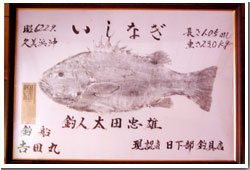 いしなぎ
昭62.9.
久美浜沖
長さ1.05m
重さ23.0kg
釣人 太田忠雄
釣船
吉田丸
現認者 日下部釣具店